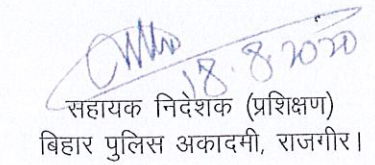 18.8.2020
सहायक निदेशक (प्रशिक्षण)
बिहार पुलिस अकादमी, राजगीर।